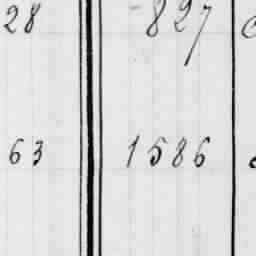 28 827
63 1586